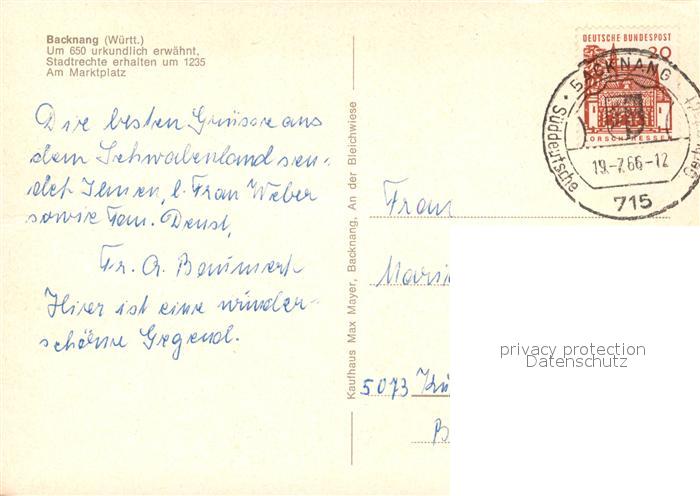 Backnang (Württ.)
Um 650 urkundlich erwähnt,
Stadtrechte erhalten um 1235
Am Marktplatz
Die besten Grüsse aus
dem Schwabenland sen-
det Ihnen, l. Frau Weber
sowie Fam. Denst,
Fr. A. Baumert
Hier ist eine wunder-
schöne Gegend.
Kaufhaus Max Mayer, Backnang, An der Bleichwiese
DEUTSCHE BUNDESPOST
20
LORSCH/HESSEN
BACKNANG
Süddeutsche
19.-7.66-12
715
Frau
Maria
5073
privacy protection
Datenschutz